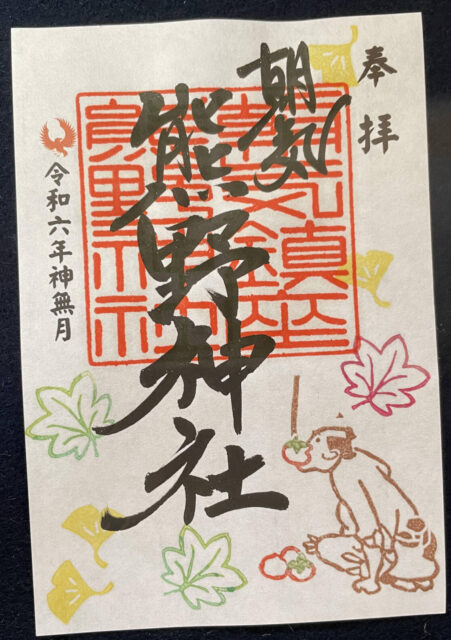 奉拝
朝気
熊野神社
令和六年神無月